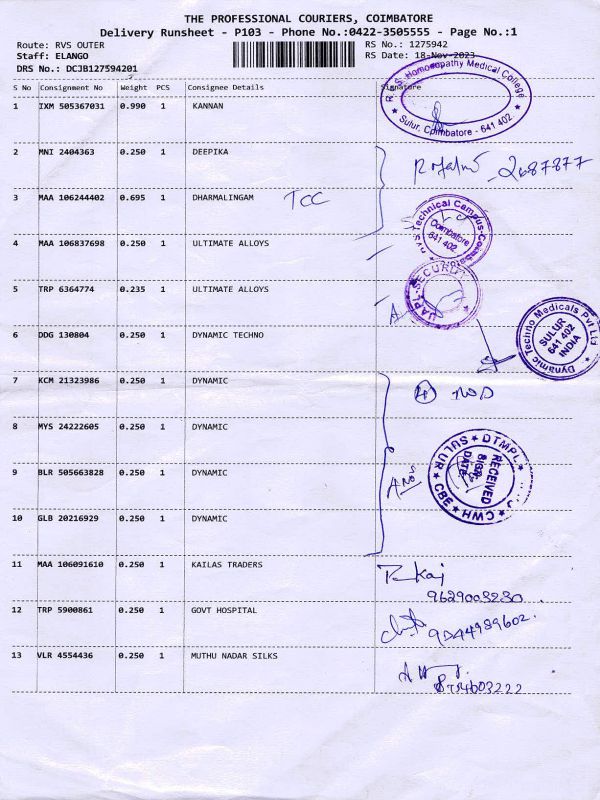 THE PROFESSIONAL COURIERS, COIMBATORE
Delivery Runsheet - P103 - Phone No.:0422-3505555 - Page No.:1
Route: RVS OUTER
RS No.: 1275942
Staff: ELANGO
RS Date: 18-Nov-2023
DRS No.: DCJB127594201
S No Consignment No Weight PCS Consignee Details Signature
1 IXM 505367031 0.990 1 KANNAN
R.V.S. Homoeopathy Medical College
Sulur, Coimbatore - 641 402
2 MNI 2404363 0.250 1 DEEPIKA
2687877
3 MAA 106244402 0.695 1 DHARMALINGAM TCC
RVS Technical Campus-Coimbatore
Coimbatore
641 402
4 MAA 106837698 0.250 1 ULTIMATE ALLOYS
UAPL-SECURITY
5 TRP 6364774 0.235 1 ULTIMATE ALLOYS
6 DDG 130804 0.250 1 DYNAMIC TECHNO
Dynamic Techno Medicals Pvt Ltd
SULUR
641 402
INDIA
7 KCM 21323986 0.250 1 DYNAMIC
8 MYS 24222605 0.250 1 DYNAMIC
DTMPL SULUR CBE CWH
RECEIVED
SIGN
DATE
9 BLR 505663828 0.250 1 DYNAMIC
4 Nos
10 GLB 20216929 0.250 1 DYNAMIC
11 MAA 106091610 0.250 1 KAILAS TRADERS
9629003230
12 TRP 5900861 0.250 1 GOVT HOSPITAL
13 VLR 4554436 0.250 1 MUTHU NADAR SILKS